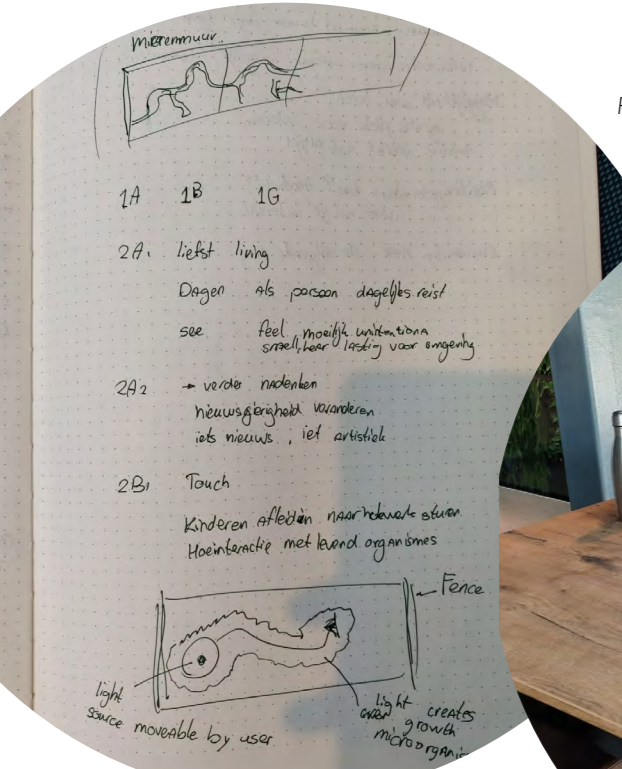 Mierenmuur
1A 1B 1G
2A1 liefst living
Dagen Als persoon dagelijks reist
see feel, moeilijk unintentiona
smell, hear lastig voor omgeving
2A2 → verder nadenken
nieuwsgierigheid veranderen
iets nieuws, iet artistiek
2B1 Touch
Kinderen Afleiden naar sturen
Hoe interactie met levend organismes
Fence
light
source moveable by user
light creates
growth
microorganis